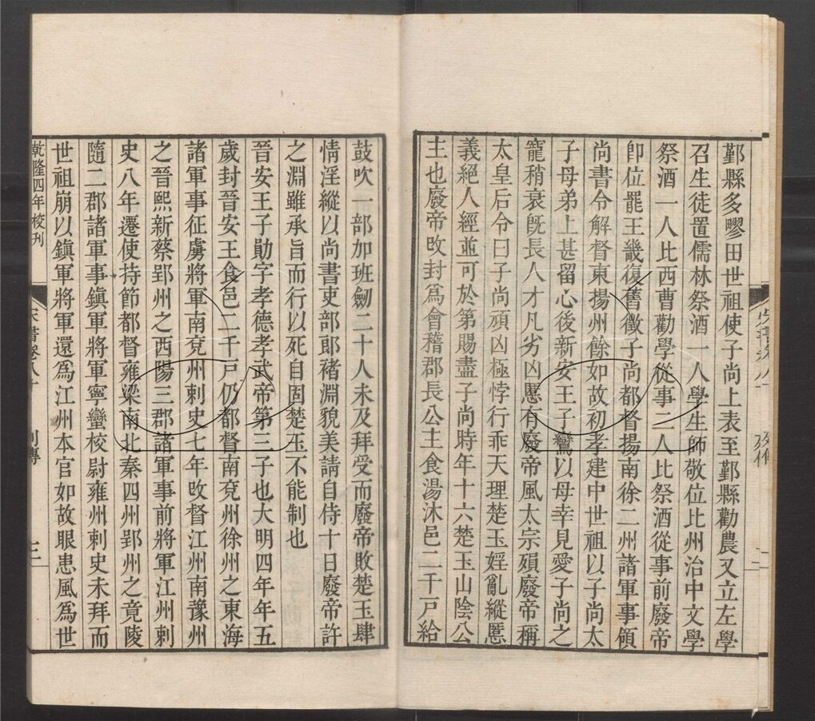 鄞縣多㽎田世祖使子尚上表至鄞縣勸農又立左學
召生徒置儒林祭酒一人學生師敬位比州治中文學
祭酒一人比西曹勸學從事二人比祭酒從事前廢帝
卽位罷王畿復舊徵子尚都督揚南徐二州諸軍事領
尚書令解督東揚州餘如故初孝建中世祖以子尚太
子母弟上甚留心後新安王子鸞以母幸見愛子尚之
寵稍衰旣長人才凡劣凶慝有廢帝風太宗殞廢帝稱
太皇后令曰子尚頑凶極悖行乖天理楚玉婬亂縱慝
義絕人經並可於第賜盡子尚時年十六楚玉山陰公
主也廢帝改封爲會稽郡長公主食湯沐邑二千戸給
鼓吹一部加班劒二十人未及拜受而廢帝敗楚玉肆
情淫縱以尚書吏部郎褚淵貌美請自侍十日廢帝許
之淵雖承旨而行以死自固楚玉不能制也
晉安王子勛字孝德孝武帝第三子也大明四年年五
歲封晉安王食邑二千戸仍都督南兗州徐州之東海
諸軍事征虜將軍南兗州刺史七年改督江州南豫州
之晉熙新蔡郢州之西陽三郡諸軍事前將軍江州刺
史八年遷使持節都督雍梁南北秦四州郢州之竟陵
隨二郡諸軍事鎮軍將軍寧蠻校尉雍州刺史未拜而
世祖崩以鎮軍將軍還爲江州本官如故眼患風爲世
乾隆四年校刊
宋書卷八十
列傳
三